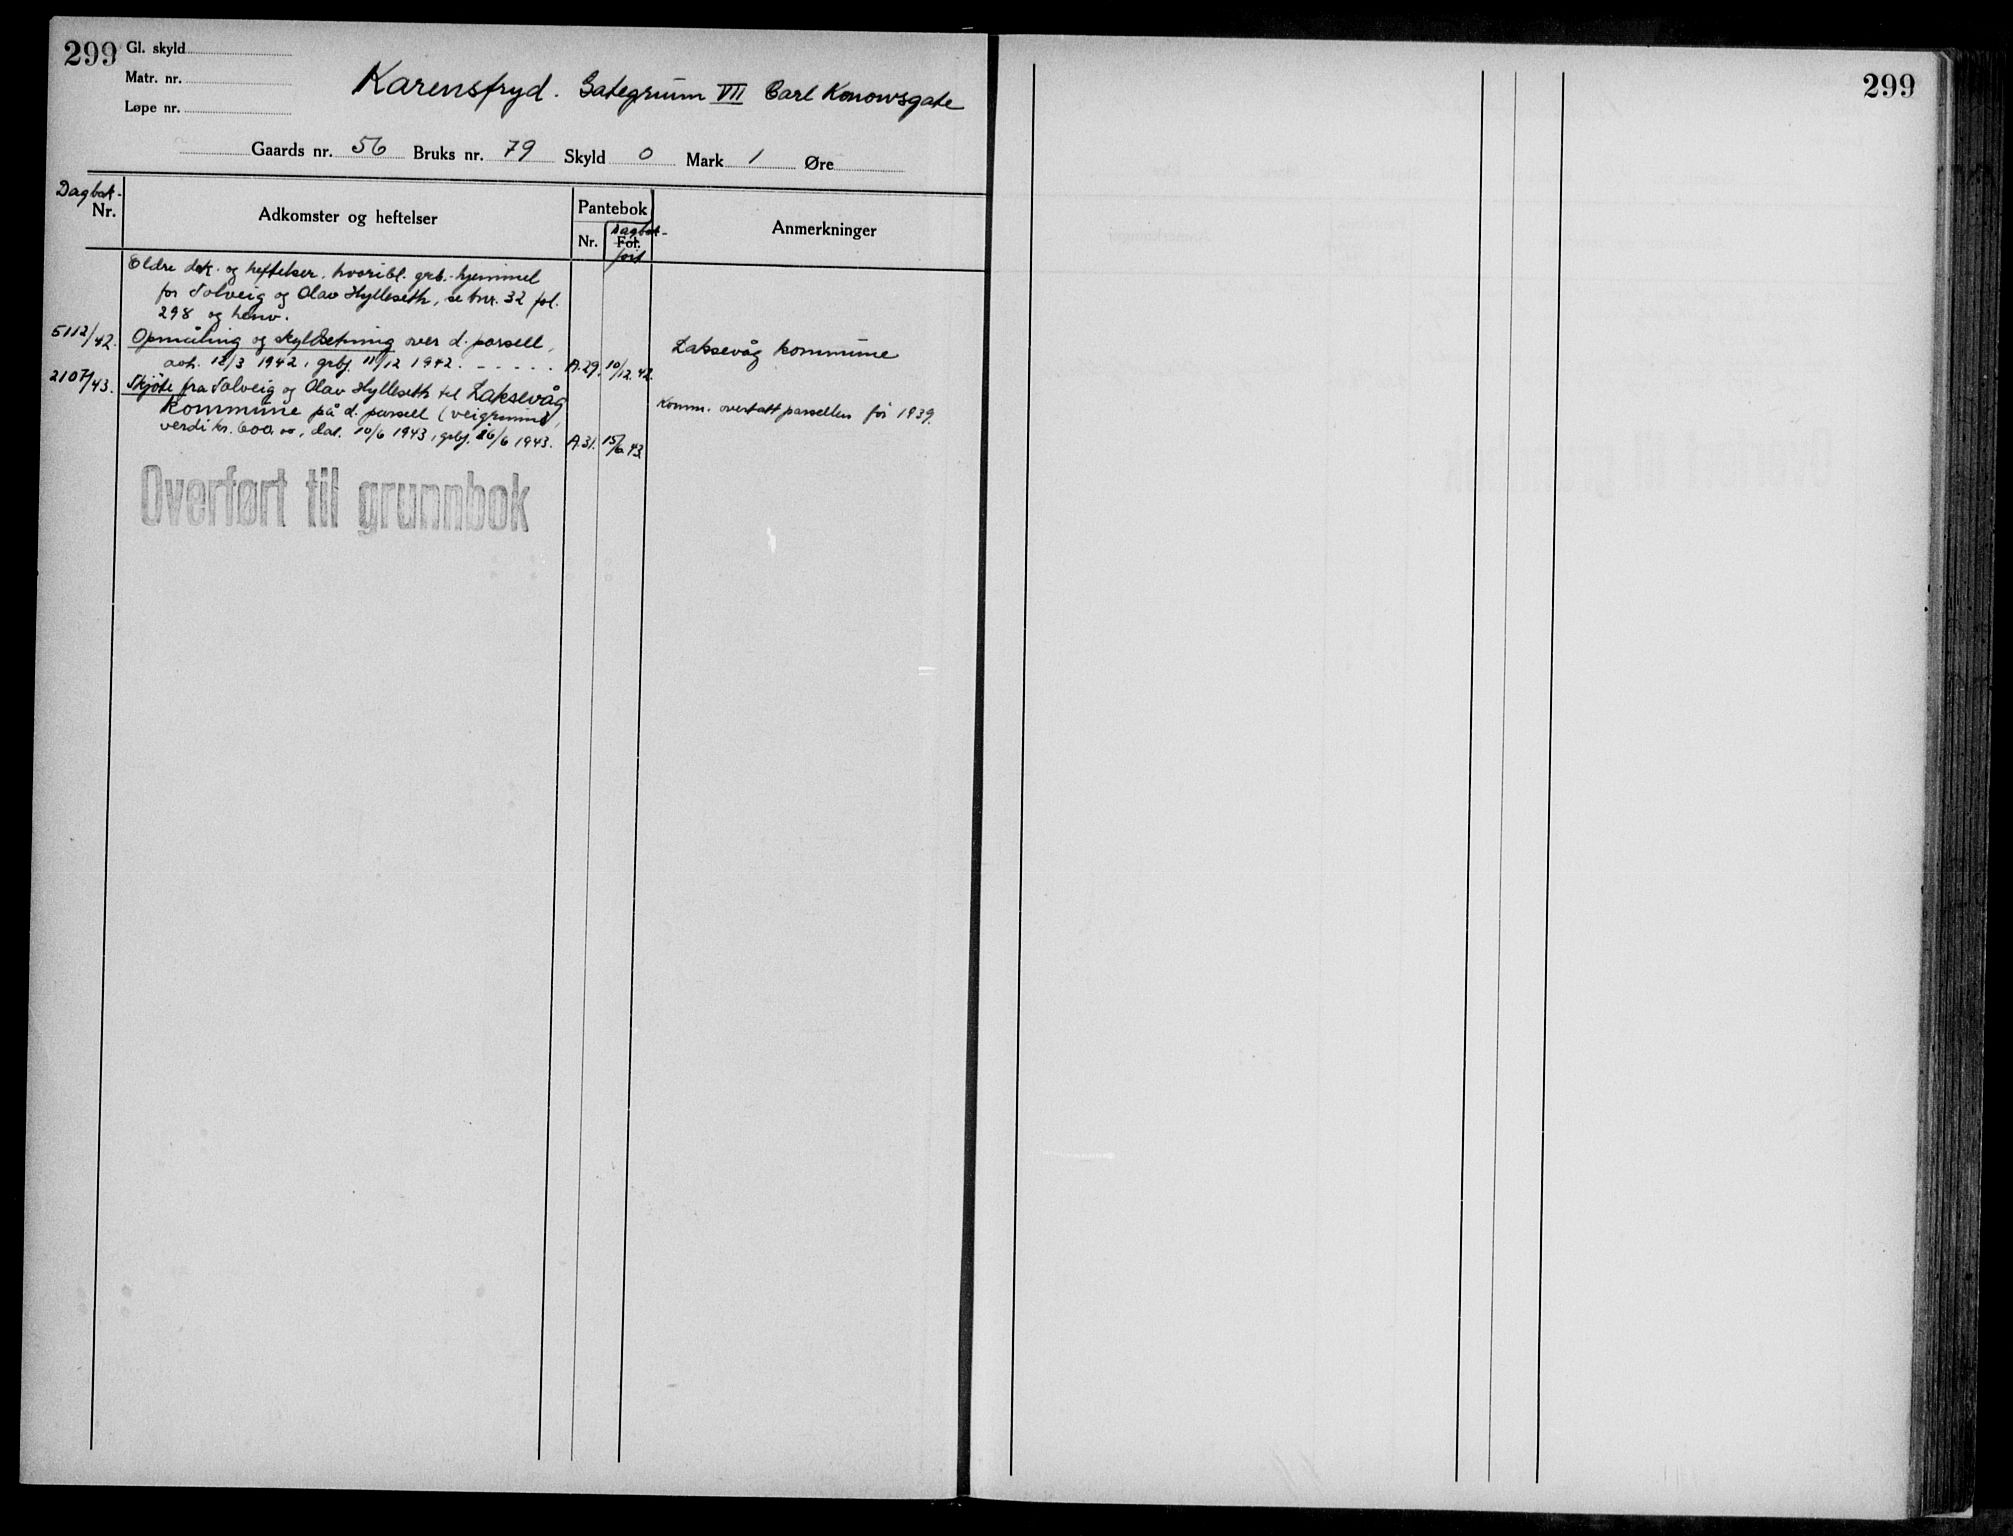 299 Gl. skyld
Matr. nr.
Løpe nr.
Karensfryd. Gategrunn VII Carl Konowsgate
Gaards nr. 56 Bruks nr. 79 Skyld 0 Mark 1 Øre
Dagbok-
Nr. Adkomster og heftelser Pantebok Nr. Fol. Dagbok- ført Anmerkninger
Eldre dok. og heftelser, hvoribl. grb. hjemmel
for Solveig og Olav Hylleseth, se bnr. 32 fol.
298 og henv.
5112/42. Opmåling og skyldsetning over d. parsell,
avh. 12/3 1942, grbj. 11/12 1942. - - - - - A.29. 10/12.42. Laksevåg kommune
2107/43. Skjöte fra Solveig og Olav Hylleseth til Laksevåg
kommune på d. parsell (veigrunn), Komm. overtatt parsellen för 1939.
verdi kr. 600.00, dat. 10/6 1943, grbj. 26/6 1943. A.31. 15/6.43.
Overført til grunnbok
299